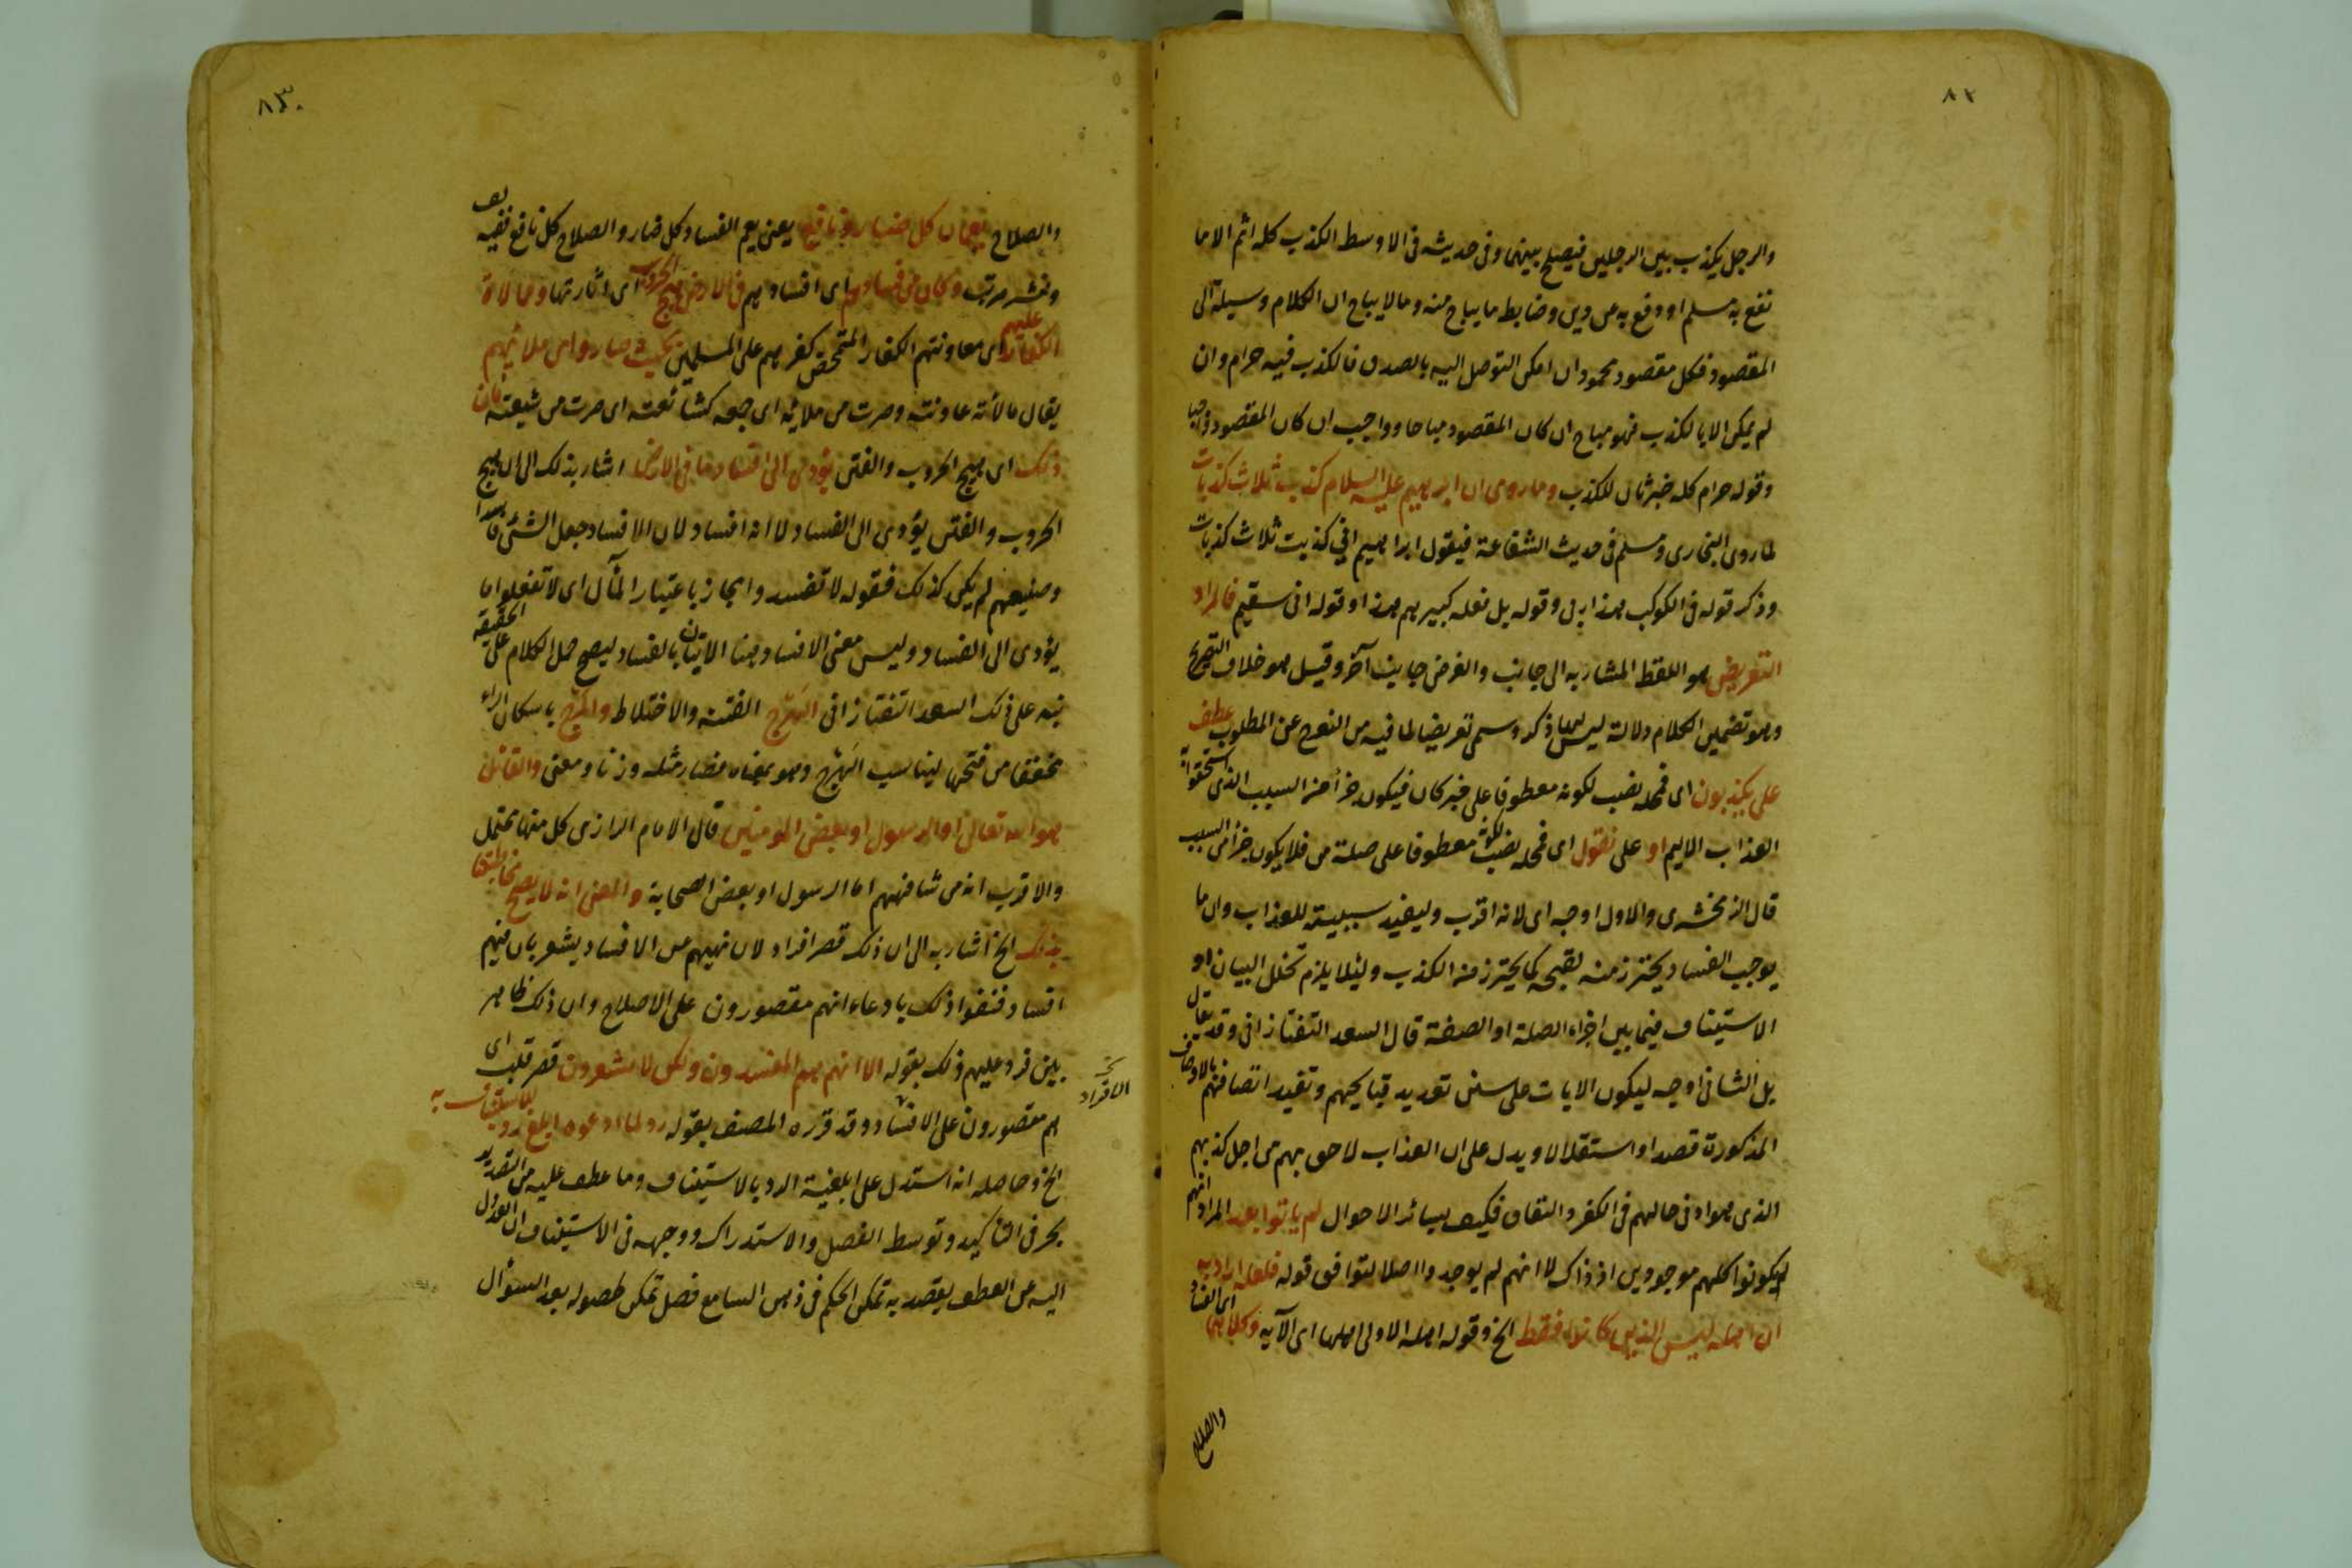 ٨٢
والرجل يكذب بين الرجلين فيصلح بينهما وفى حديثه فى الاوسط الكذب كله اثم الا ما
نفع به مسلم او دفع به عن دين وضابط ما يباح منه وما لا يباح ان الكلام وسيلة الى
المقصود فكل مقصود محمود ان امكن التوصل اليه بالصدق فالكذب فيه حرام وان
لم يمكن الا بالكذب فهو مباح ان كان المقصود مباحا وواجب ان كان المقصود واجبا
وقوله حرام كله خبر ثان للكذب وما روى ان ابراهيم عليه السلام كذب ثلاث كذبات
لما روى البخارى ومسلم فى حديث الشفاعة فيقول ابراهيم انى كذبت ثلاث كذبات
وذكر قوله فى الكوكب هذا ربى وقوله بل فعله كبيرهم هذا وقوله انى سقيم فالمراد
التعريض هو اللفظ المشار به الى جانب والغرض جانب آخر وقيل هو خلاف التصريح
وهو تضمين الكلام دلالة ليس لها ذكر وسمى تعريضا لما فيه من التعوج عن المطلوب عطف
على يكذبون اى فمحله نصب لكونه معطوفا على خبر كان فيكون جزأ من السبب الذى استحقوا به
العذاب الاليم او على نقول اى فمحله نصب لكونه معطوفا على صلة من فلا يكون جزأ من السبب
قال الزمخشرى والاول اوجه اى لانه اقرب وليفيد سببيته للعذاب وان ما
يوجب الفساد يحترز منه لقبحه كما يحترز منه الكذب ولئلا يلزم تخلل البيان او
الاستيناف فيما بين اجزاء الصلة او الصفة قال السعد التفتازانى وقد يقال
بل الثانى اوجه ليكون الايات على سنن تعديد قبايحهم وتفيد اتصافهم بالاوصاف
المذكورة قصدا واستقلالا ويدل على ان العذاب لاحق بهم من اجل كذبهم
الذى هو ادنى حالهم فى الكفر والنفاق فكيف بسائر الاحوال لم ياتوا بعد المراد انهم
لم يكونوا كلهم موجودين اذ ذاك لا انهم لم يوجدوا اصلا لتوافق قوله فلعله اراد به
ان اهله ليس الذين كانوا فقط الخ وقوله اهله الاولى اهلها اى الآية وكلاهما اى الفساد
والصلاح
٨٣
والصلاح يعمان كل ضار ونافع يعنى يعم الفساد كل ضار والصلاح كل نافع ففيه لف
ونشر مرتب وكان من فسادهم اى افسادهم فى الارض هيج الحروب اى اثارتها وممالاة
الكفار عليهم اى معاونتهم الكفار المتمحض كفرهم على المسلمين بحيث صاروا من ملائهم
يقال مالأته عاونته وصرت من ملائه اى جمعه كشائعته اى صرت من شيعته فان
ذلك اى هيج الحروب والفتن يؤدى الى افساد ما فى الارض اشار بذلك الى ان هيج
الحروب والفتن يؤدى الى الفساد لا انه افساد لان الافساد جعل الشئ فاسدا
وصنيعهم لم يكن كذلك فقوله لا تفسدوا مجاز باعتبار المآل اى لا تفعلوا ما
يؤدى الى الفساد وليس معنى الافساد هنا الاتيان بالفساد ليصح حمل الكلام على الحقيقة
نبه على ذلك السعد التفتازانى الهرج الفتنة والاختلاط والمرج باسكان الراء
مخففا من فتحها ليناسب الهرج وهو بمعناه فصار مثله وزنا ومعنى والقائل
هو الله تعالى او الرسول او بعض المومنين قال الامام الرازى كل منها محتمل
والاقرب انه من شافههم اما الرسول او بعض الصحابة والمعنى انه لا يصح مخاطبتنا
بذلك الخ اشار به الى ان ذلك قصر افراد لان نهيهم عن الافساد يشعر بان فيهم
افساد فنفوا ذلك بادعاء انهم مقصورون على الاصلاح وان ذلك ظاهر
بين فرد عليهم ذلك بقوله الا انهم هم المفسدون ولكن لا يشعرون قصر قلب اى
الافراد
هم مقصورون على الافساد وقد قرره المصنف بقوله رد لما ادعوه ابلغ رد للاستيناف به
الخ وحاصله انه استدل على ابلغية الرد بالاستيناف وما عطف عليه من التصدير
بحرفى التأكيد وتوسط الفصل والاستدراك ووجهه فى الاستيناف ان العدول
اليه عن العطف يقصد به تمكن الحكم فى ذهن السامع فضل تمكن لحصوله بعد السؤال